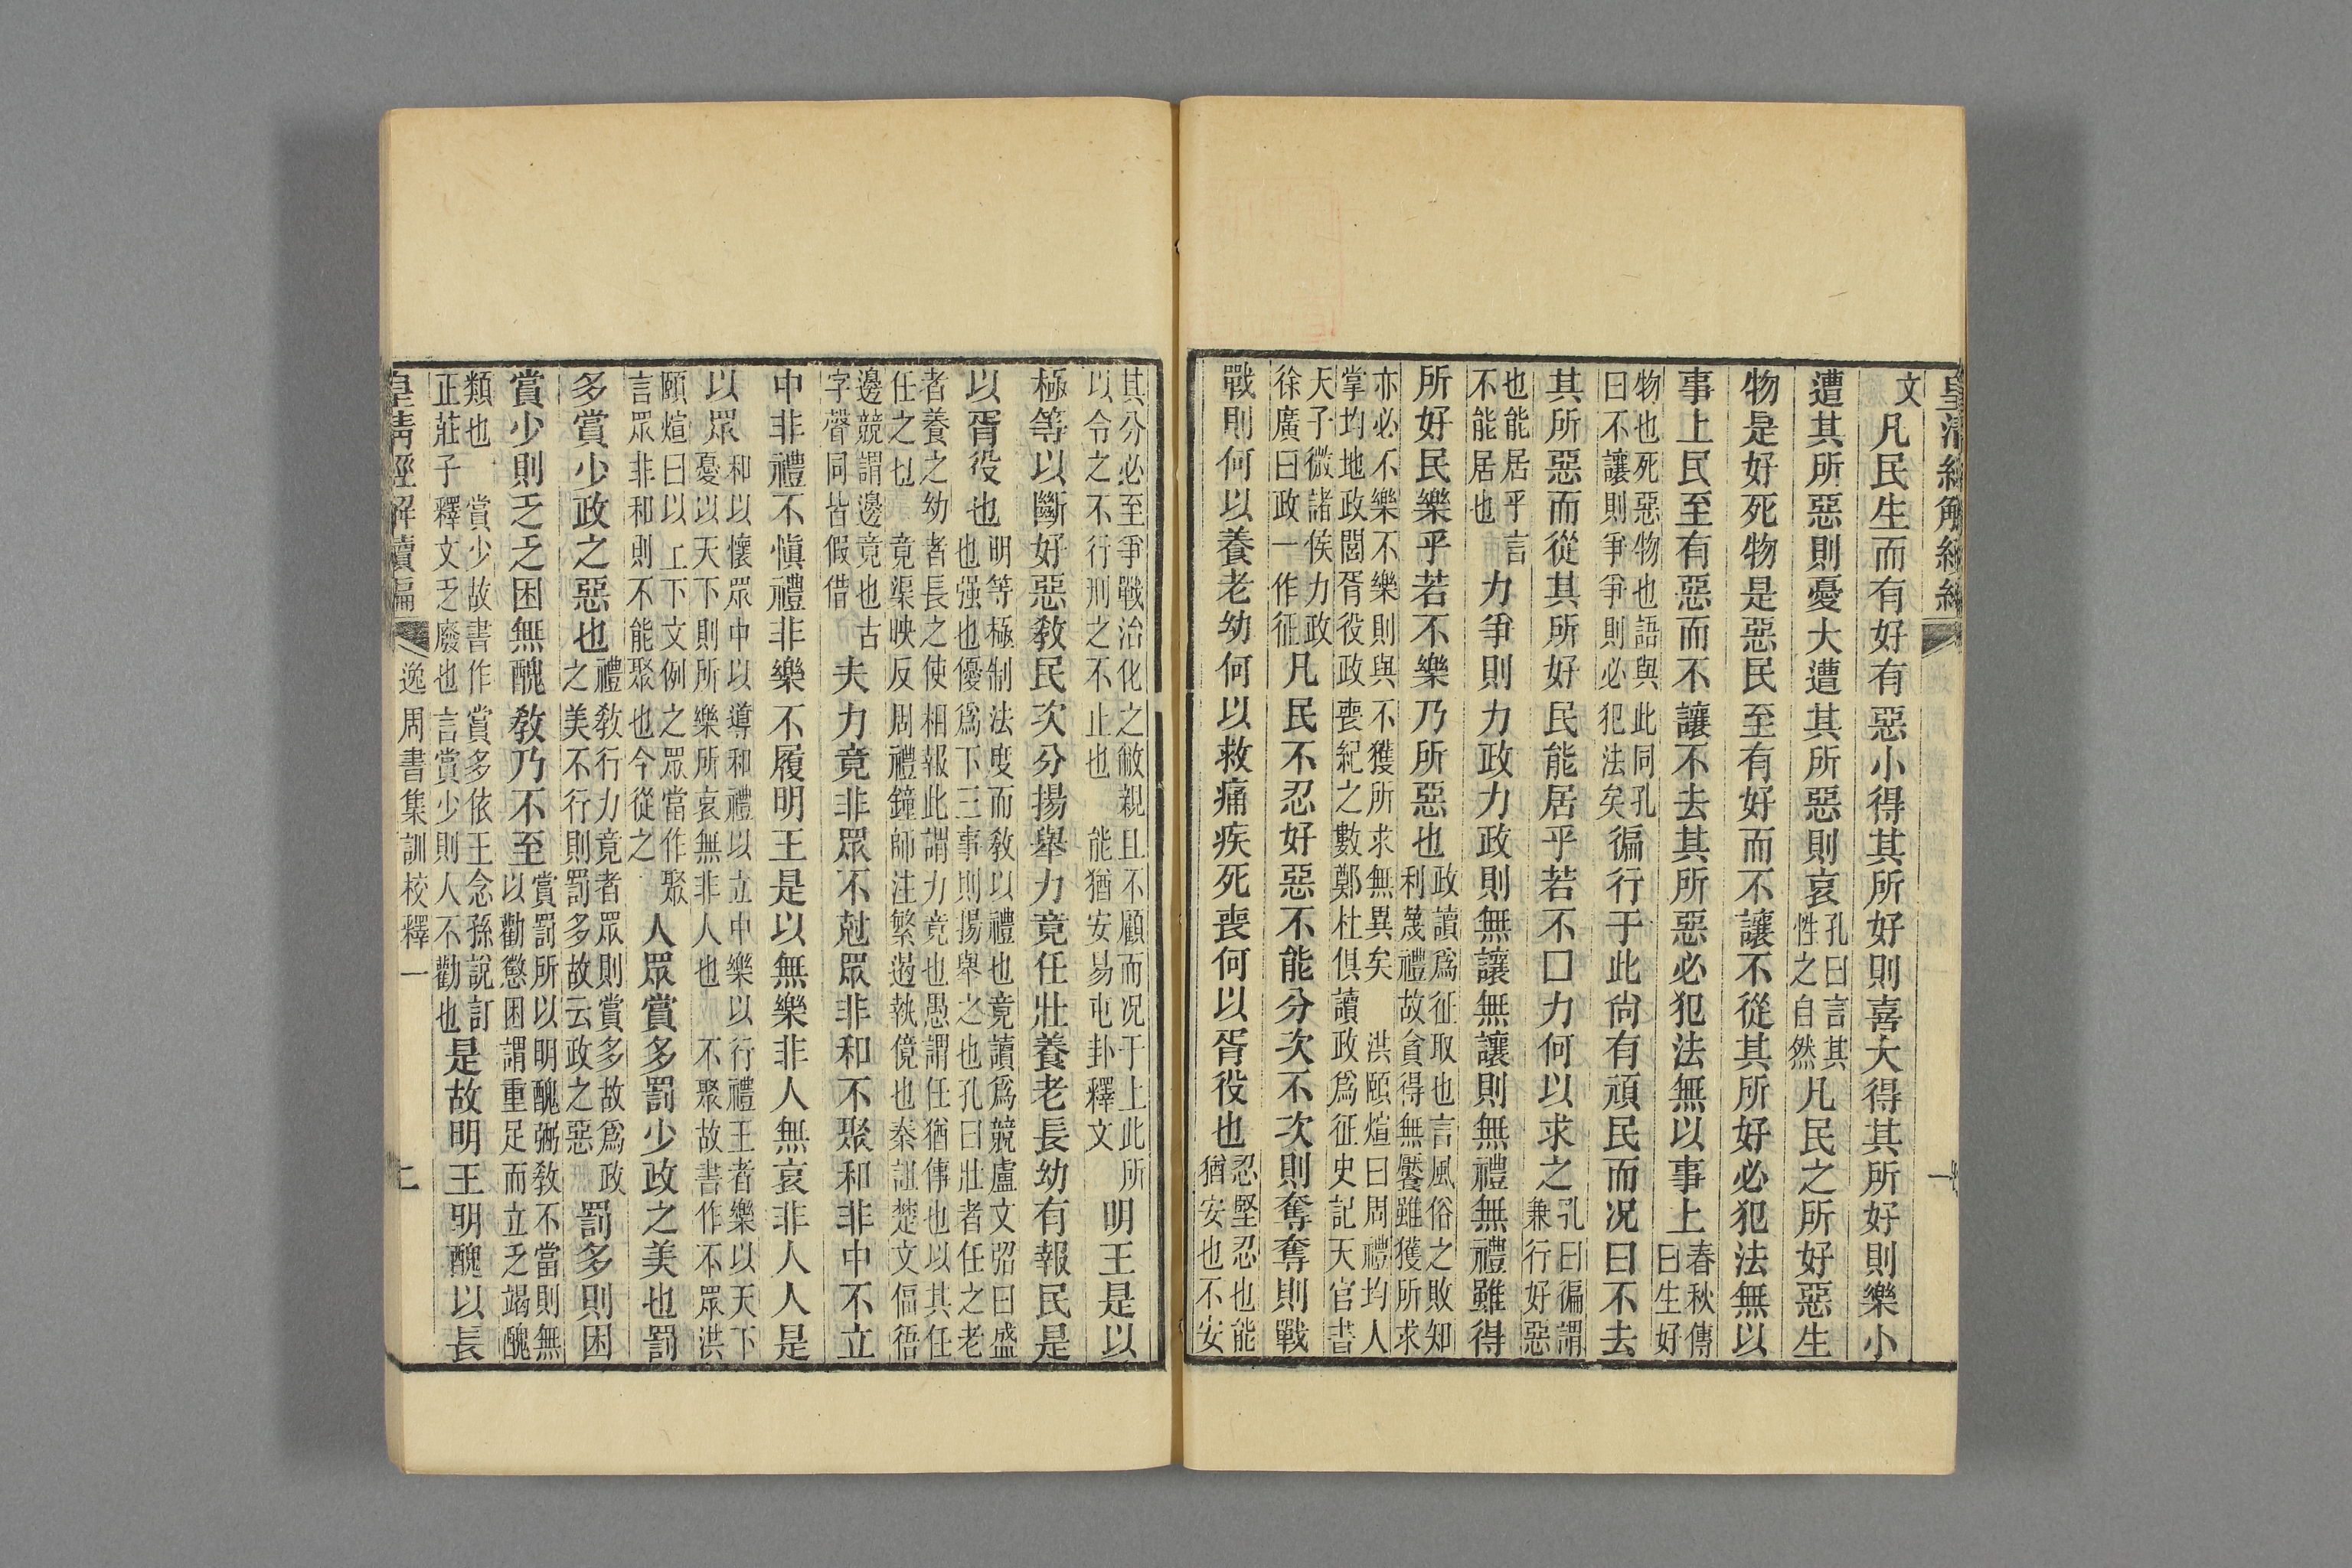 皇清經解續編
一
文
凡民生而有好有惡小得其所好則喜大得其所好則樂小
遭其所惡則憂大遭其所惡則哀
孔曰言其
性之自然
凡民之所好惡生
物是好死物是惡民至有好而不讓不從其所好必犯法無以
事上民至有惡而不讓不去其所惡必犯法無以事上
春秋傳
曰生好
物也死惡物也語與此同孔
曰不讓則爭爭則必犯法矣
徧行于此尙有頑民而况曰不去
其所惡而從其所好民能居乎若不口力何以求之
孔曰徧謂
兼行好惡
也能居乎言
不能居也
力爭則力政力政則無讓無讓則無禮無禮雖得
所好民樂乎若不樂乃所惡也
政讀爲征取也言風俗之敗知
利蔑禮故貪得無饜雖獲所求
亦必不樂不樂則與不獲所求無異矣洪頤煊曰周禮均人
掌均地政閭胥役政喪紀之數鄭杜俱讀政爲征史記天官書
天子微諸侯力政
徐廣曰政一作征
凡民不忍好惡不能分次不次則奪奪則戰
戰則何以養老幼何以救痛疾死喪何以胥役也
忍堅忍也能
猶安也不安
其分必至爭戰治化之敝親且不顧而况于上此所
以令之不行刑之不止也能猶安易屯卦釋文
明王是以
極等以斷好惡敎民次分揚舉力竟任壯養老長幼有報民是
以胥役也
明等極制法度而敎以禮也竟讀爲競盧文弨曰盛
也强也優爲下三事則揚舉之也孔曰壯者任之老
者養之幼者長之使相報此謂力竟也愚謂任猶傳也以其任
任之也竟渠映反周禮鐘師注繁遏執儓也秦詛楚文偪㤹
邊競謂邊竟也古
字聲同皆假借
夫力竟非眾不尅眾非和不聚和非中不立
中非禮不愼禮非樂不履明王是以無樂非人無哀非人人是
以眾
和以懷眾中以導和禮以立中樂以行禮王者樂以天下
憂以天下則所樂所哀無非人也不聚故書作不眾洪
頤煊曰以上下文例之眾當作聚
言眾非和則不能聚也今從之
人眾賞多罰少政之美也罰
多賞少政之惡也
禮敎行力竟者眾則賞多故爲政
之美不行則罰多故云政之惡
罰多則困
賞少則乏乏困無醜敎乃不至
賞罰所以明醜弼敎不當則無
以勸懲困謂重足而立乏竭醜
類也賞少故書作賞多依王念孫說訂
正莊子釋文乏廢也言賞少則人不勸也
是故明王明醜以長
皇清經解續編
逸周書集訓校釋一
二